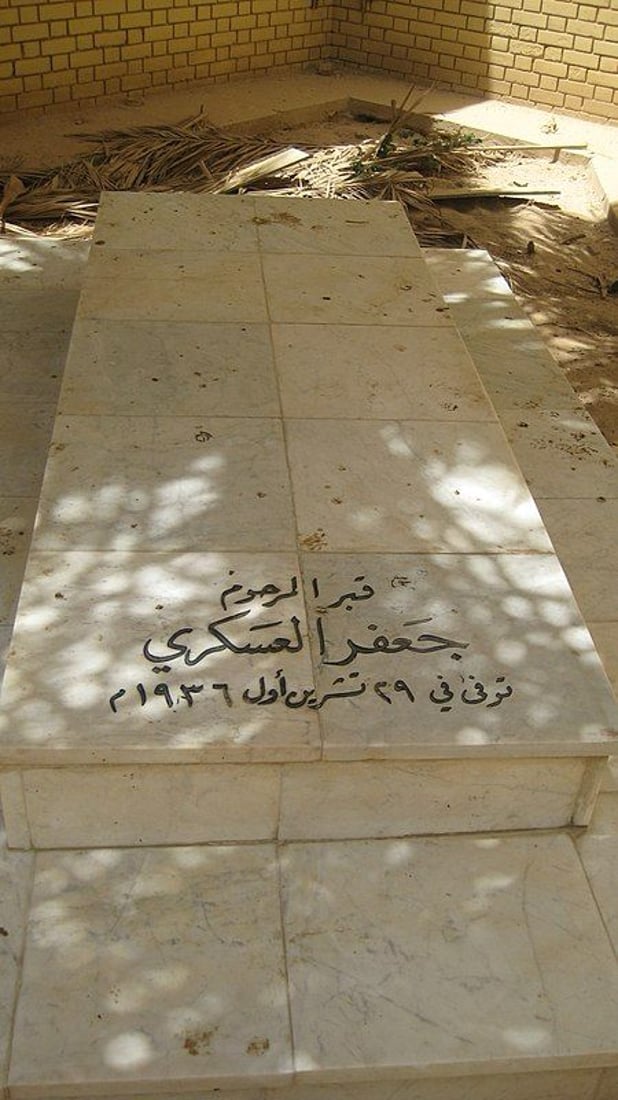 قبر المرحوم
جَعفر العسَكري
توفى في ٢٩ تشرين أول ١٩٣٦ م